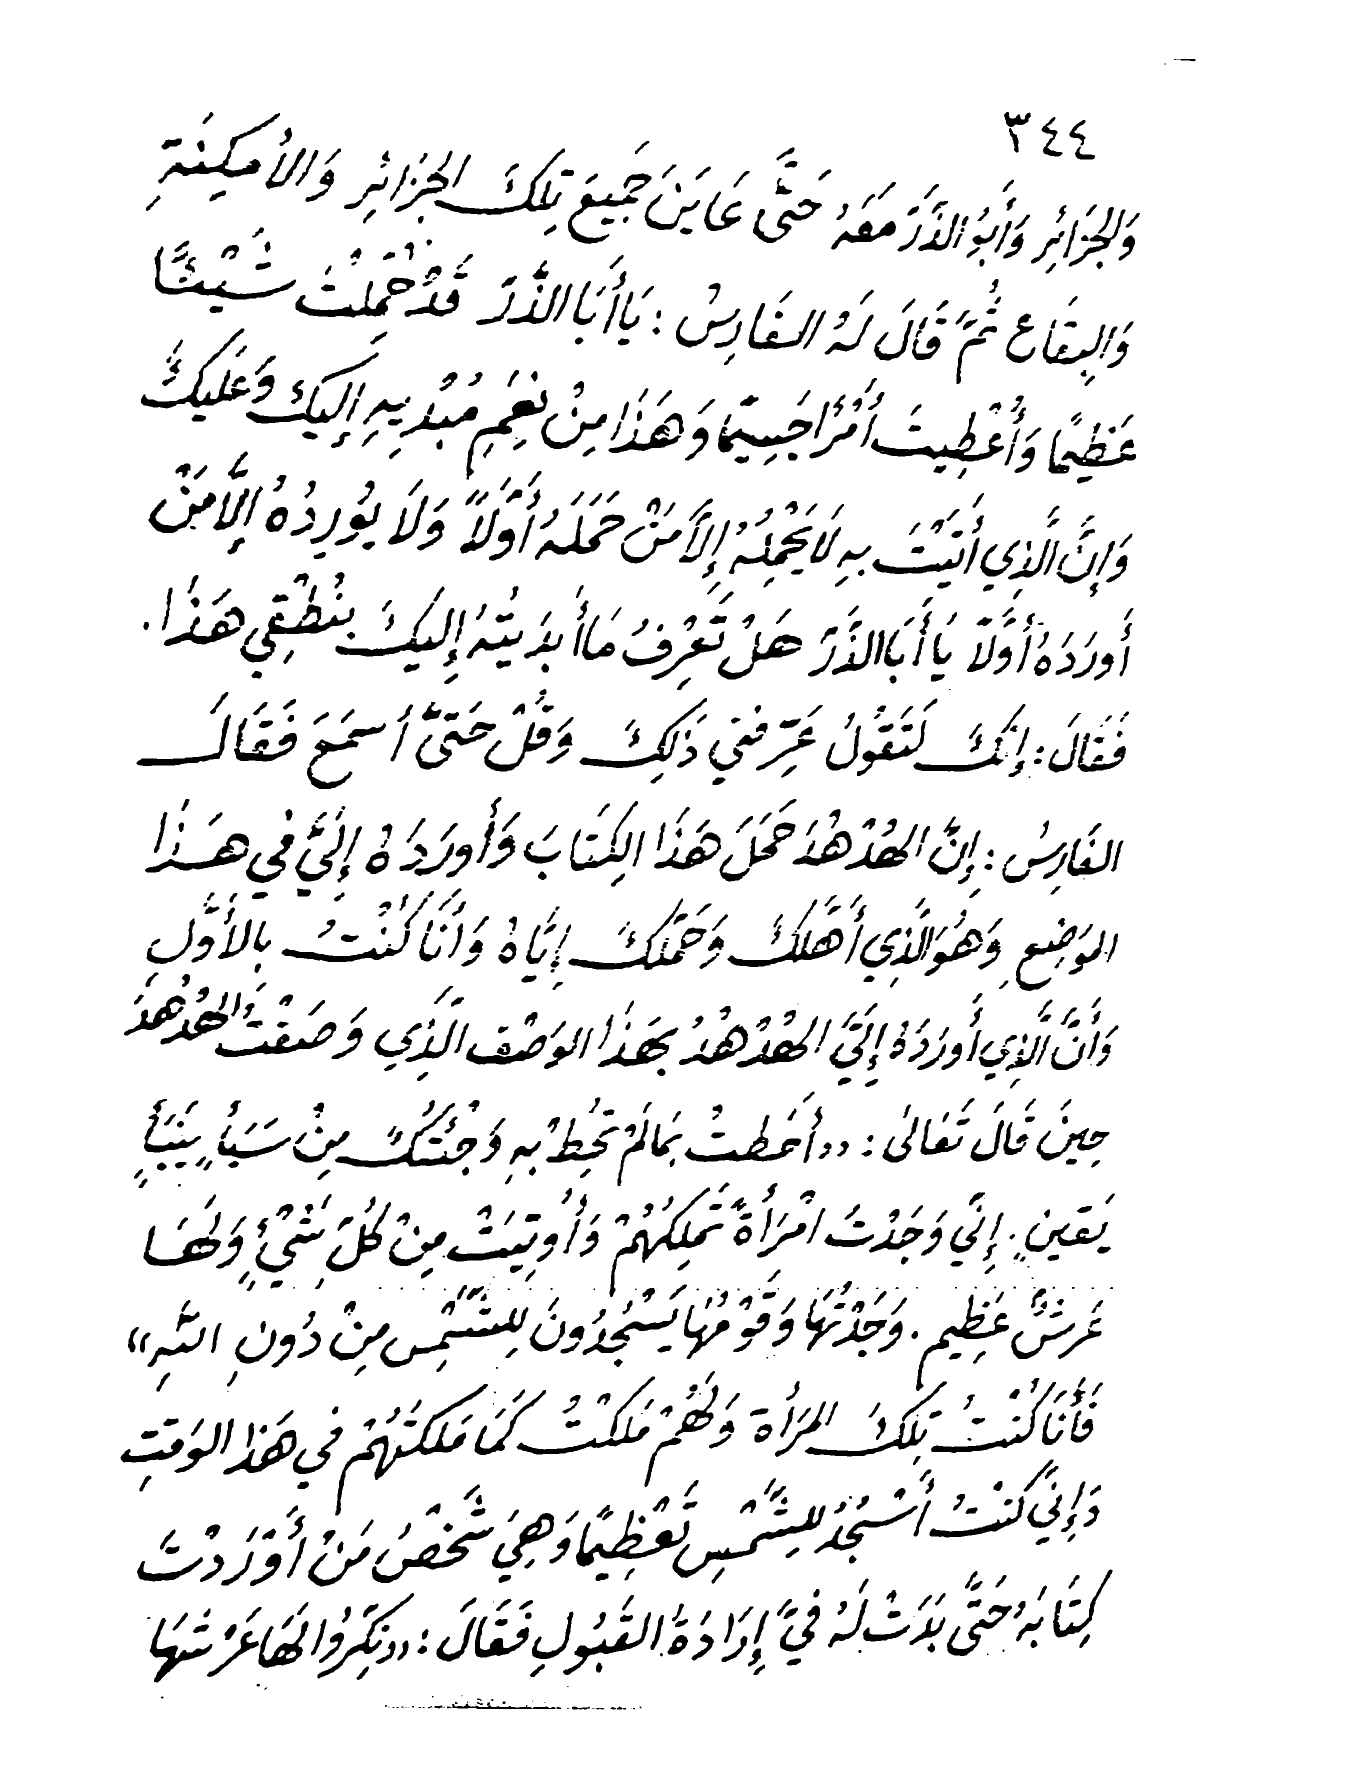 ٣٤٤
وَالجَزَائِرِ وَأَبُو الذَّرِّ مَعَهُ حَتَّى عَايَنَ جَمِيعَ تِلكَ الجَزَائِرِ وَالأَمكِنَةِ
وَالبِقَاعِ ثُمَّ قَالَ لَهُ الفَارِسُ : يَا أَبَا الذَّرِّ قَدْ حُمِلْتَ شَيْئًا
عَظِيمًا وَأُعْطِيتَ أَمْرًا جَسِيمًا وَهَذَا مِنْ نِعَمِ مُبْدِيهِ إِلَيكَ وَعَلَيكَ
وَإِنَّ الَّذِي أَتَيْتَ بِهِ لَا يَحْمِلُهُ إِلَّا مَنْ حَمَلَهُ أَوَّلًا وَلَا يُورِدُهُ إِلَّا مَنْ
أَورَدَهُ أَوَّلًا يَا أَبَا الذَّرِّ هَلْ تَعْرِفُ مَا أَبدَيتُهُ إِلَيكَ بِنُطْقِي هَذَا .
فَقَالَ : إِنَّكَ لَتَقُولُ عَرِّفْنِي ذَلِكَ وَقُلْ حَتَّى أَسمَعَ فَقَالَ
الفَارِسُ : إِنَّ الهُدْهُدَ حَمَلَ هَذَا الكِتَابَ وَأَورَدَهُ إِلَيَّ فِي هَذَا
المَوضِعِ وَهُوَ الَّذِي أَهَّلَكَ وَحَمَّلَكَ إِيَّاهُ وَأَنَا كُنْتُ بِالأَوَّلِ
وَأَنَّ الَّذِي أَورَدَهُ إِلَيَّ الهُدْهُدُ بِهَذَا الوَصْفِ الَّذِي وَصَفْتُ الهُدْهُدَ
حِينَ قَالَ تَعَالَى : «أَحَطتُ بِمَا لَمْ تُحِطْ بِهِ وَجِئْتُكَ مِنْ سَبَأٍ بِنَبَأٍ
يَقِينٍ . إِنِّي وَجَدْتُ امْرَأَةً تَمْلِكُهُمْ وَأُوتِيَتْ مِنْ كُلِّ شَيْءٍ وَلَهَا
عَرشٌ عَظِيم . وَجَدْتُهَا وَقَوْمَهَا يَسْجُدُونَ لِلشَّمْسِ مِنْ دُونِ اللَّهِ»
فَأَنَا كُنْتُ تِلكَ المَرأَة وَلَهُمْ مَلَكْتُ كَمَا مَلَكتَهُمْ فِي هَذَا الوَقتِ
وَإِنِّي كُنْتُ أَسْجُدُ لِلشَّمْسِ تَعْظِيمًا وَهِيَ شَخْصُ مَنْ أَوْرَدْتَ
كِتَابَهُ حَتَّى بَدَتْ لَهُ فِيَّ إِرَادَةُ القَبُولِ فَقَالَ : «نَكِّرُوا لَهَا عَرْشَهَا